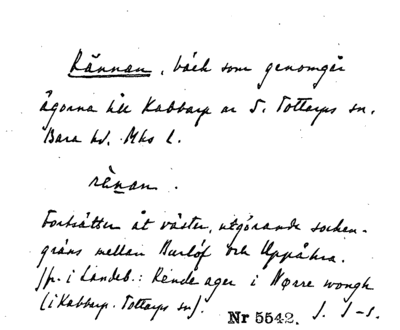 Rännan, bäck som genomgår
ägorna till Kabbarp nr 5. Tottarps sn.
Bara hd. Mhs L.
rènan.
Fortsätter åt väster, utgörande socken-
gräns mellan Burlöf och Uppåkra.
Jfr. i Landeb.: Rende ager i Nørre wongh
(i Kabbarp. Tottarps sn).
Nr 5542. J. J-s.